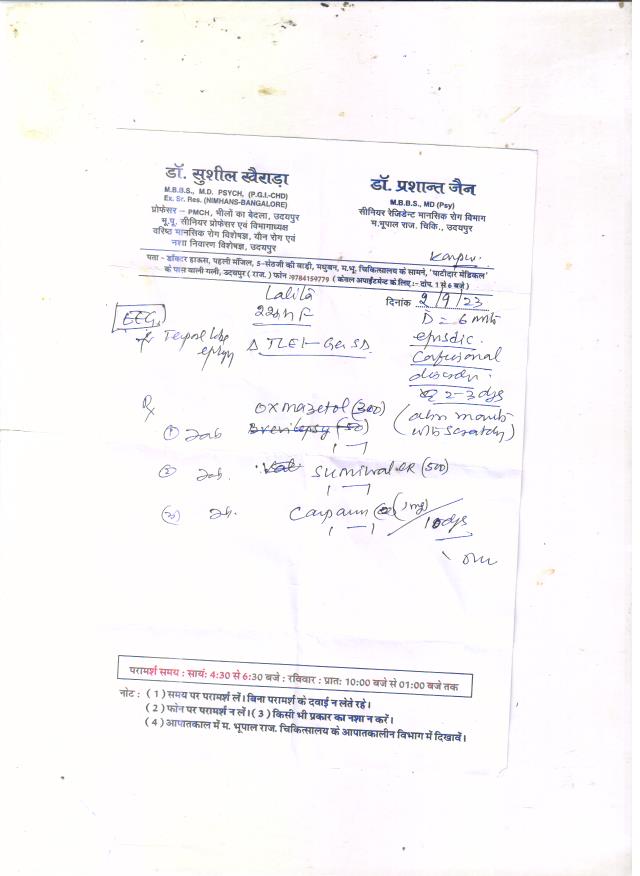 डॉ. सुशील खैराड़ा
M.B.B.S., M.D. PSYCH, (P.G.I.-CHD)
Ex. Sr. Res. (NIMHANS-BANGALORE)
प्रोफेसर – PMCH, भीलों का बेदला, उदयपुर
भू.पू. सीनियर प्रोफेसर एवं विभागाध्यक्ष
वरिष्ठ मानसिक रोग विशेषज्ञ, यौन रोग एवं
नशा निवारण विशेषज्ञ, उदयपुर
डॉ. प्रशान्त जैन
M.B.B.S., MD (Psy)
सीनियर रेजिडेन्ट मानसिक रोग विभाग
म.भूपाल राज. चिकि., उदयपुर
पता - डॉक्टर हाऊस, पहली मंजिल, 5-सेठजी की बाड़ी, मधुबन, म.भू. चिकित्सालय के सामने, 'पाटीदार मेडिकल'
के पास वाली गली, उदयपुर ( राज. ) फोन :9784159779 ( केवल अपाईंटमेन्ट के लिए :- दोप. 1 से 6 बजे )
दिनांक 2/9/23
Lalita
22 F
D = 6
EEG
Δ TLE
episodic
Confusional
2-3 dys
Rx
Oxmazetol (300)
① Tab (50)
1 — 1
② Tab. (500)
1 — 1
③ (1mg) / 10 dys
1 — 1
परामर्श समय : सायं: 4:30 से 6:30 बजे : रविवार : प्रात: 10:00 बजे से 01:00 बजे तक
नोट : ( 1 ) समय पर परामर्श लें। बिना परामर्श के दवाई न लेते रहे।
( 2 ) फोन पर परामर्श न लें। ( 3 ) किसी भी प्रकार का नशा न करें।
( 4 ) आपातकाल में म. भूपाल राज. चिकित्सालय के आपातकालीन विभाग में दिखावें।